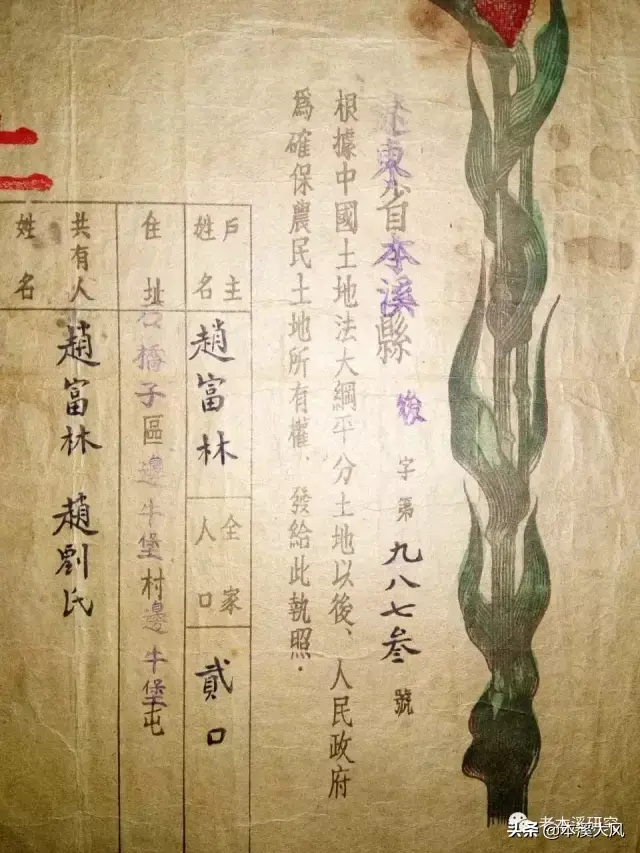 遼東省本溪縣 俊 字第九八七叁號
根據中國土地法大綱平分土地以後、人民政府
為確保農民土地所有權、發給此執照.
戶主姓名
趙富林
全家人口
貳口
住址
石橋子區邊牛堡村邊牛堡屯
共有人姓名
趙富林 趙劉氏
老本溪研究
头条@本溪大风